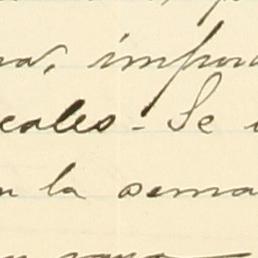 a, impor
cales - Se
n la sema